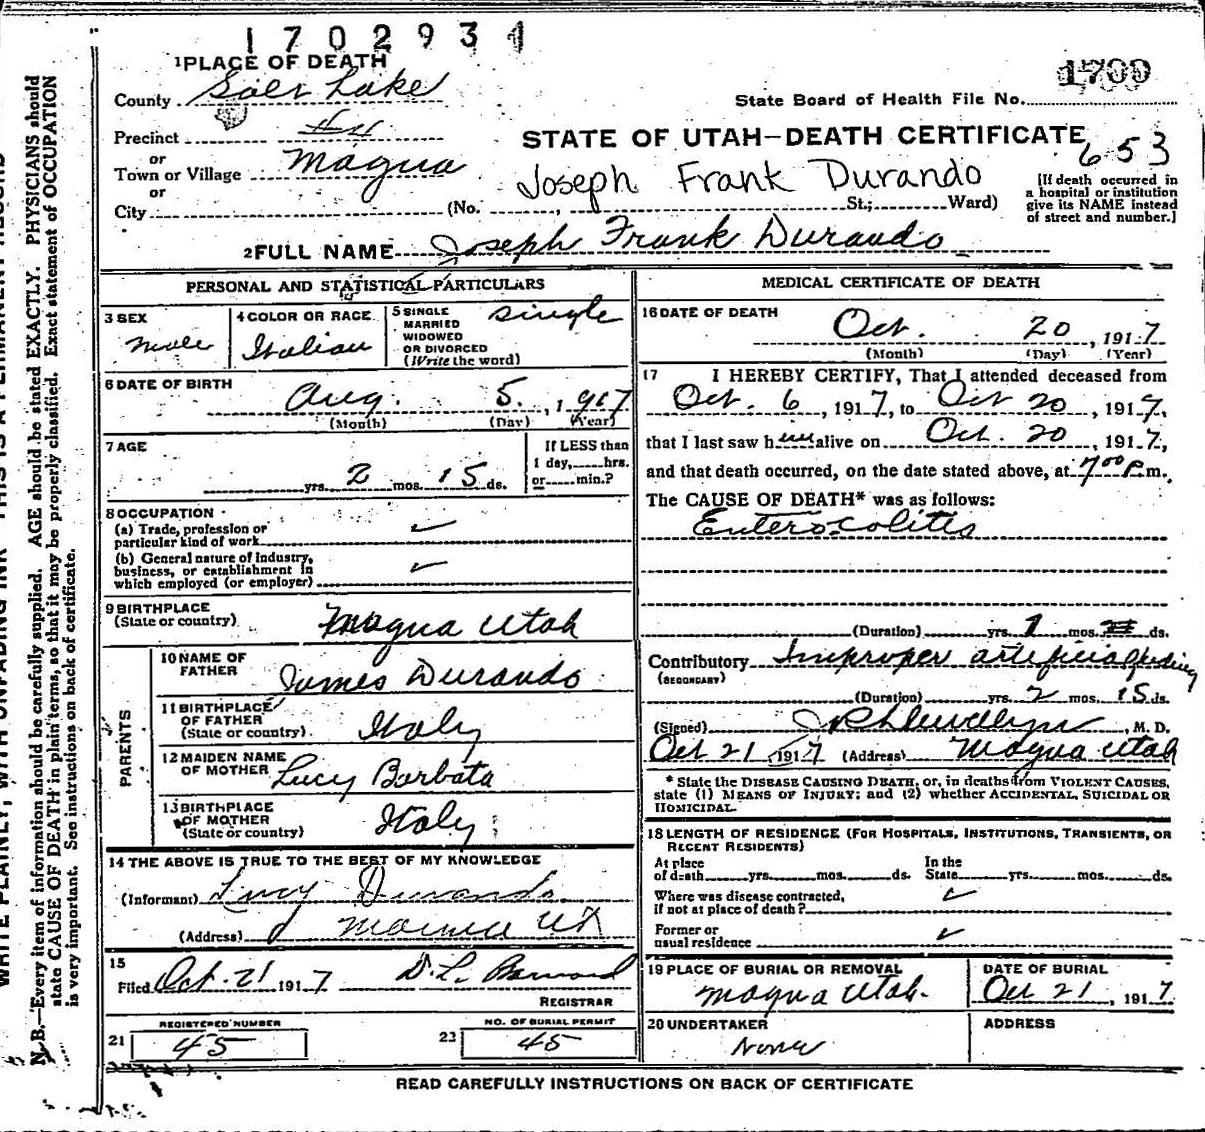 1702934
1 PLACE OF DEATH
1799
County Salt Lake
State Board of Health File No.
Precinct
STATE OF UTAH—DEATH CERTIFICATE
653
or
Town or Village Magna
Joseph Frank Durando
[If death occurred in
a hospital or institution
give its NAME instead
of street and number.]
or
City (No. , St.; Ward)
2 FULL NAME Joseph Frank Durando
PERSONAL AND STATISTICAL PARTICULARS
3 SEX
male
4 COLOR OR RACE
Italian
5 SINGLE
MARRIED
WIDOWED
OR DIVORCED
(Write the word)
single
6 DATE OF BIRTH
Aug. 5. , 1917
(Month) (Day) (Year)
7 AGE
yrs. 2 mos. 15 ds.
If LESS than
1 day, hrs.
or min.?
8 OCCUPATION
(a) Trade, profession or
particular kind of work
(b) General nature of industry,
business, or establishment in
which employed (or employer)
9 BIRTHPLACE
(State or country) Magna Utah
PARENTS
10 NAME OF
FATHER James Durando
11 BIRTHPLACE
OF FATHER
(State or country) Italy
12 MAIDEN NAME
OF MOTHER Lucy Barbata
13 BIRTHPLACE
OF MOTHER
(State or country) Italy
14 THE ABOVE IS TRUE TO THE BEST OF MY KNOWLEDGE
(Informant) Lucy Durando
(Address) Magna UT
15
Filed Oct. 21 1917 D.L. Barnard
REGISTRAR
REGISTERED NUMBER
21 45
NO. OF BURIAL PERMIT
23 45
MEDICAL CERTIFICATE OF DEATH
16 DATE OF DEATH
Oct. 20 , 1917
(Month) (Day) (Year)
17 I HEREBY CERTIFY, That I attended deceased from
Oct. 6 , 1917, to Oct 20 , 1917,
that I last saw him alive on Oct. 20 , 1917,
and that death occurred, on the date stated above, at 7 00 P.m.
The CAUSE OF DEATH* was as follows:
Enterocolitis
(Duration) yrs. 1 mos. ds.
Contributory Improper artificial feeding
(SECONDARY)
(Duration) yrs. 2 mos. 15 ds.
(Signed) J R Llewellyn , M. D.
Oct 21 , 1917 (Address) Magna Utah
* State the DISEASE CAUSING DEATH, or, in deaths from VIOLENT CAUSES,
state (1) MEANS OF INJURY; and (2) whether ACCIDENTAL, SUICIDAL OR
HOMICIDAL.
18 LENGTH OF RESIDENCE (FOR HOSPITALS, INSTITUTIONS, TRANSIENTS, OR
RECENT RESIDENTS)
At place
of death yrs. mos. ds.
In the
State yrs. mos. ds.
Where was disease contracted,
if not at place of death?
Former or
usual residence
19 PLACE OF BURIAL OR REMOVAL
Magna Utah.
DATE OF BURIAL
Oct 21 , 1917
20 UNDERTAKER
None
ADDRESS
READ CAREFULLY INSTRUCTIONS ON BACK OF CERTIFICATE
WRITE PLAINLY, WITH UNFADING INK—THIS IS A PERMANENT RECORD
N. B.—Every item of information should be carefully supplied. AGE should be stated EXACTLY. PHYSICIANS should
state CAUSE OF DEATH in plain terms, so that it may be properly classified. Exact statement of OCCUPATION
is very important. See instructions on back of certificate.